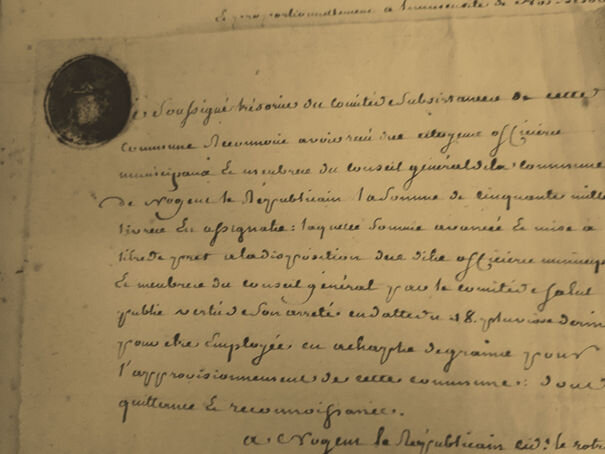 Et proportionnellement a l'immensité de nos
Je Soussigné trésorier du Comité de Subsistances de cette
commune Reconnois avoir reçu des citoyens officiers
municipaux Et membres du Conseil général de la Commune
de Nogent le Républicain la Somme de cinquante mille
livres En assignats : laquelle Somme avancée Et mise à
titre de pret a la disposition des dits officiers municip
Et membres du Conseil général par le comité de Salut
public vertu de Son arreté en datte du 18. pluviose dernier
pour être Employée en achapts de grains pour
l'approvisionnement de cette commune : dont
quittance Et reconnoissance.
a Nogent le Républicain